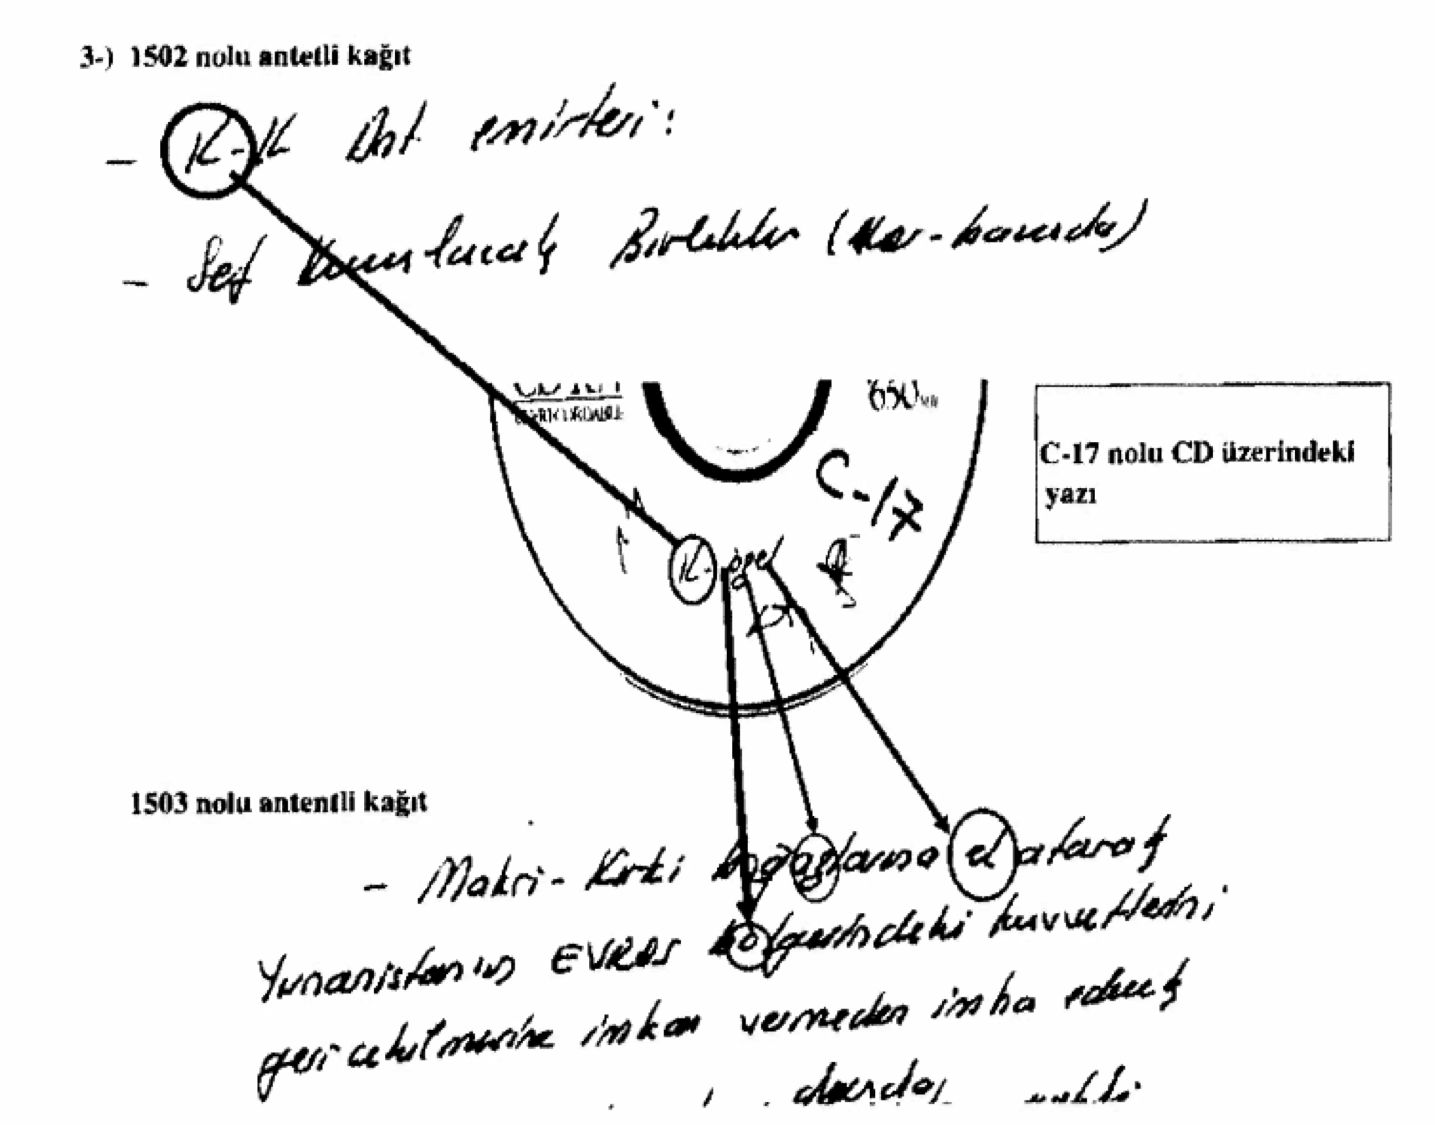 3-) 1502 nolu antetli kağıt
- K-K Dnt emirleri:
- Sef Birlikler
650 MB
C-17
K. özel
C-17 nolu CD üzerindeki
yazı
1503 nolu antentli kağıt
- Makri - Kirki boğazlarına el atarak
Yunanistan'ın EVROS bölgesindeki kuvvetlerini
geri çekilmesine imkan vermeden imha ederek